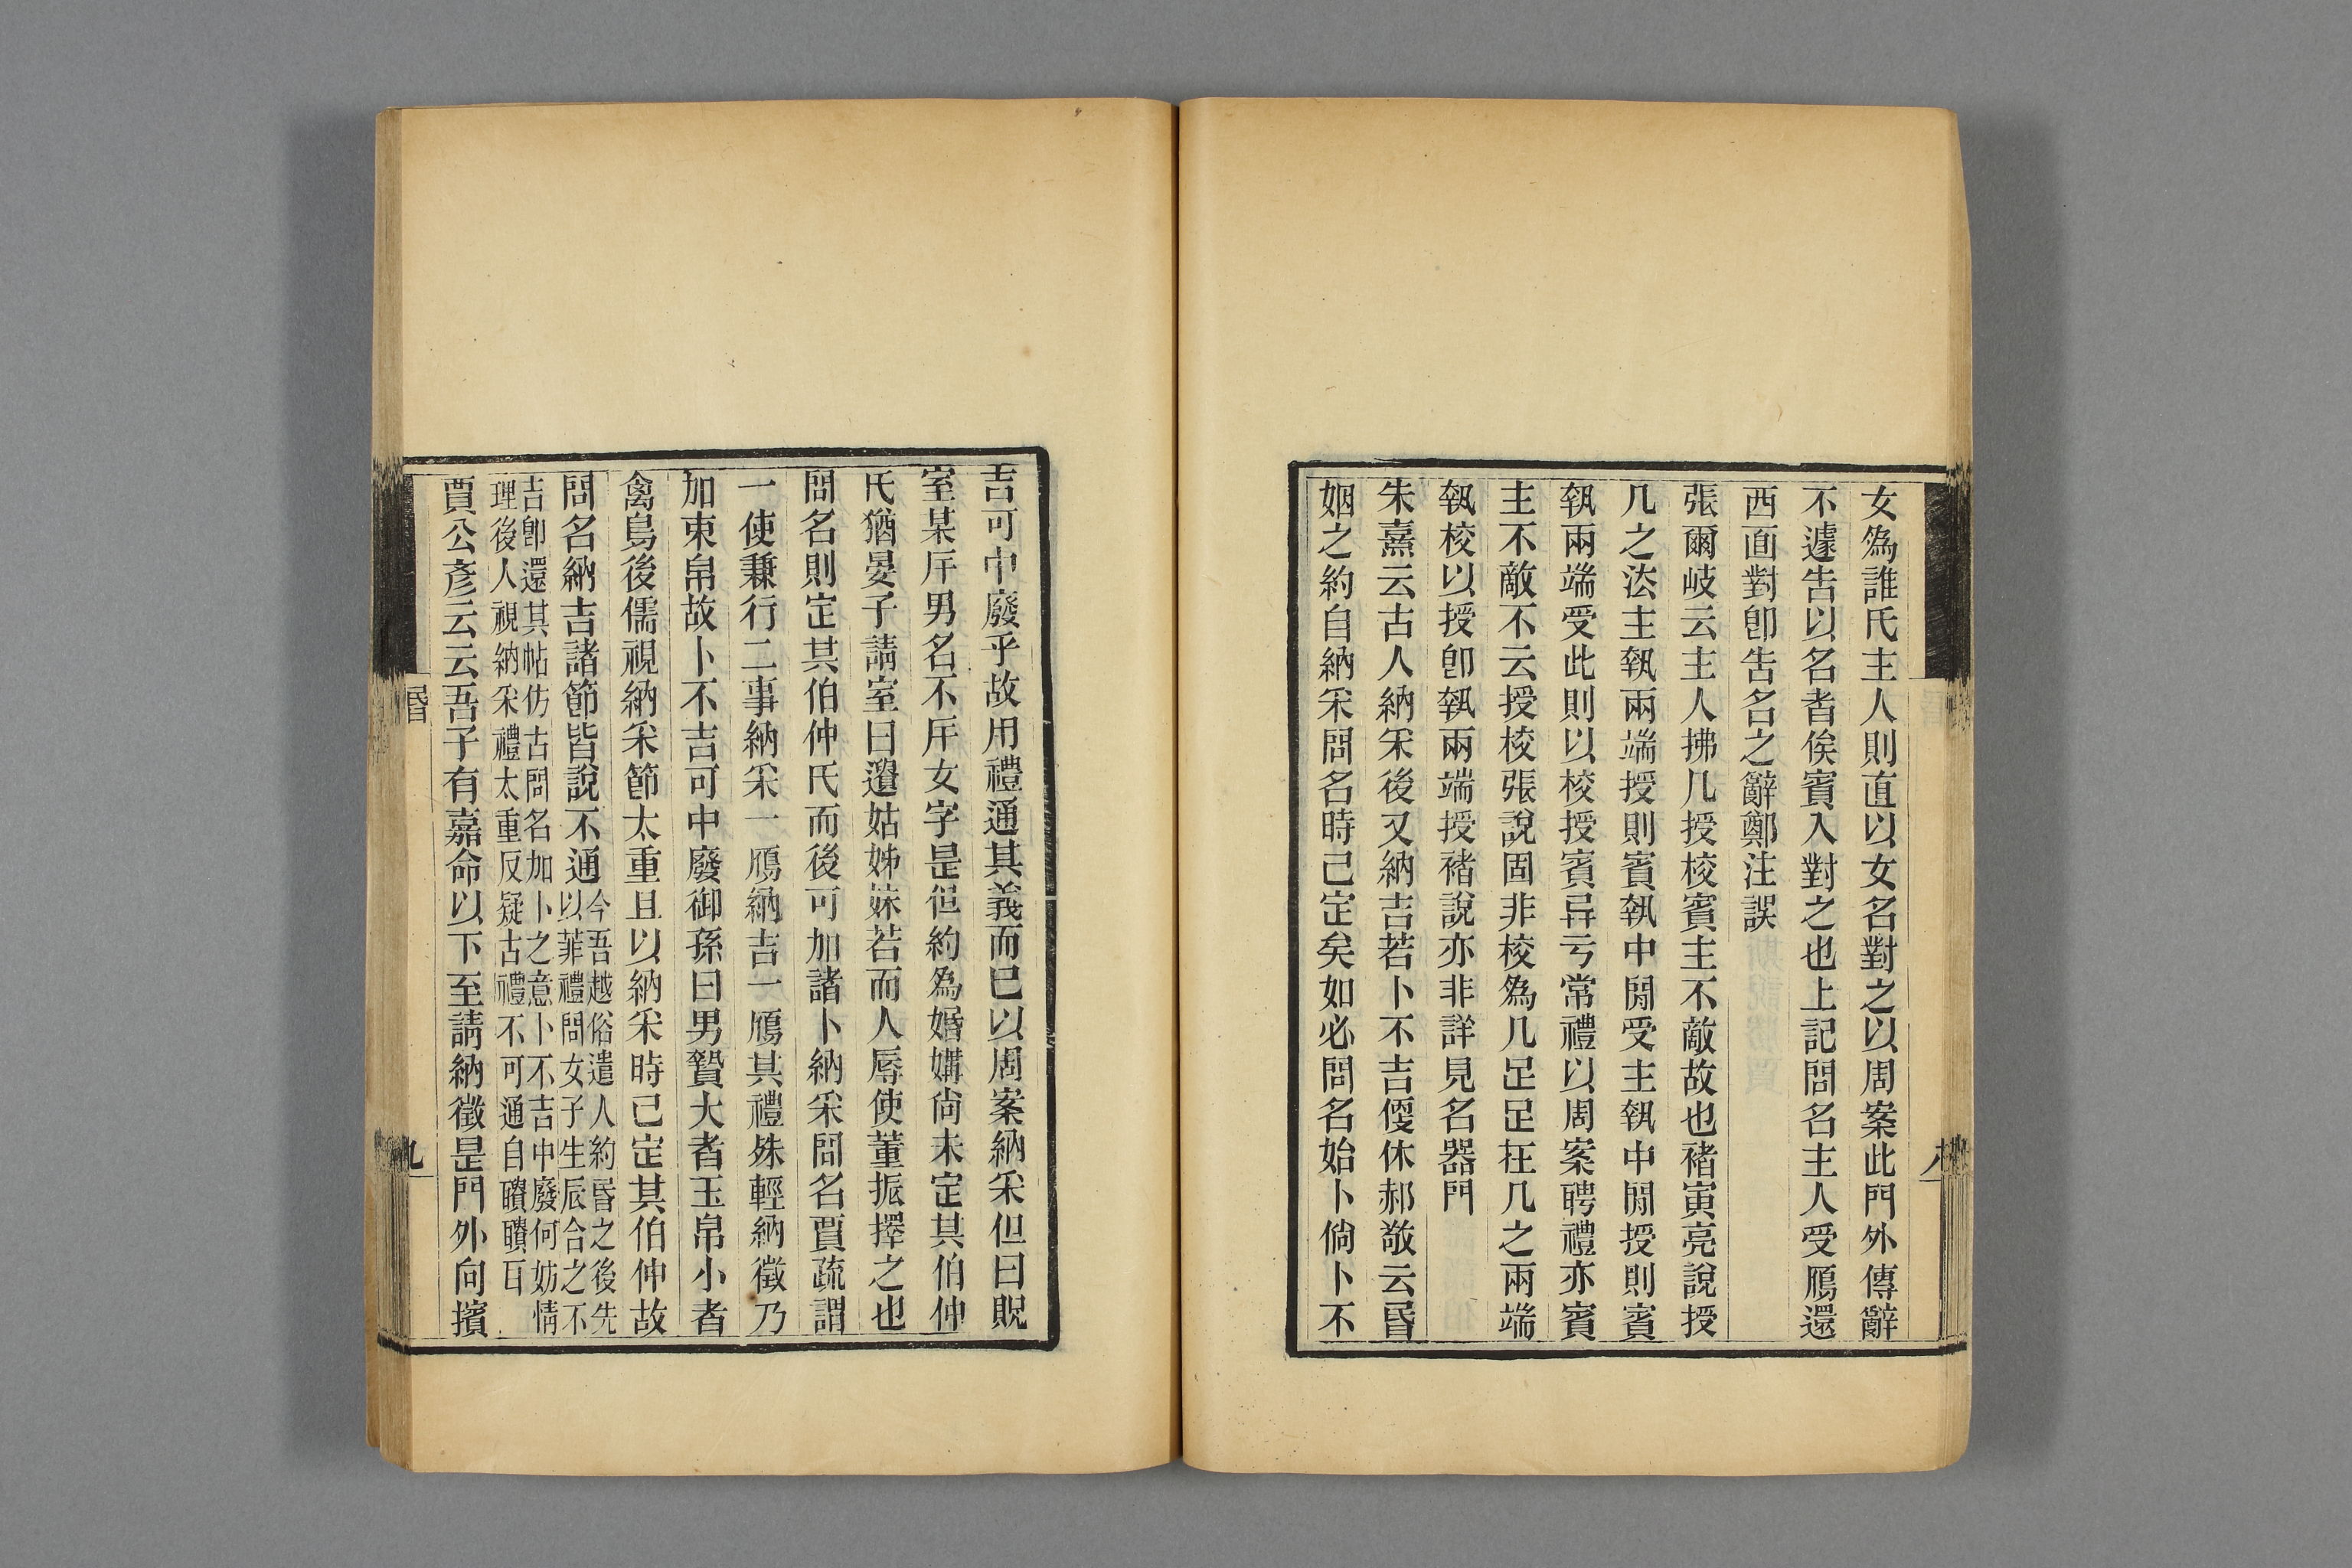 女爲誰氏主人則直以女名對之以周案此門外傳辭
不遽告以名者俟賓入對之也上記問名主人受鴈還
西面對卽告名之辭鄭注誤
張爾岐云主人拂几授校賓主不敵故也褚寅亮說授
几之法主執兩端授則賓執中閒受主執中閒授則賓
執兩端受此則以校授賓異亏常禮以周案聘禮亦賓
主不敵不云授校張說固非校爲几足足在几之兩端
執校以授卽執兩端授褚說亦非詳見名器門
朱熹云古人納采後又納吉若卜不吉便休郝敬云昏
姻之約自納采問名時已定矣如必問名始卜倘卜不
八
吉可中廢乎故用禮通其義而已以周案納采但曰貺
室某斥男名不斥女字是但約爲婚媾尙未定其伯仲
氏猶晏子請室曰遺姑姊妹若而人辱使董振擇之也
問名則定其伯仲氏而後可加諸卜納采問名賈疏謂
一使兼行二事納采一鴈納吉一鴈其禮殊輕納徵乃
加束帛故卜不吉可中廢御孫曰男贄大者玉帛小者
禽鳥後儒視納采節太重且以納采時已定其伯仲故
問名納吉諸節皆說不通今吾越俗遣人約昏之後先
以菲禮問女子生辰合之不
吉卽還其帖仿古問名加卜之意卜不吉中廢何妨情
理後人視納采禮太重反疑古禮不可通自聵聵耳
賈公彥云云吾子有嘉命以下至請納徵是門外向擯
昏
九